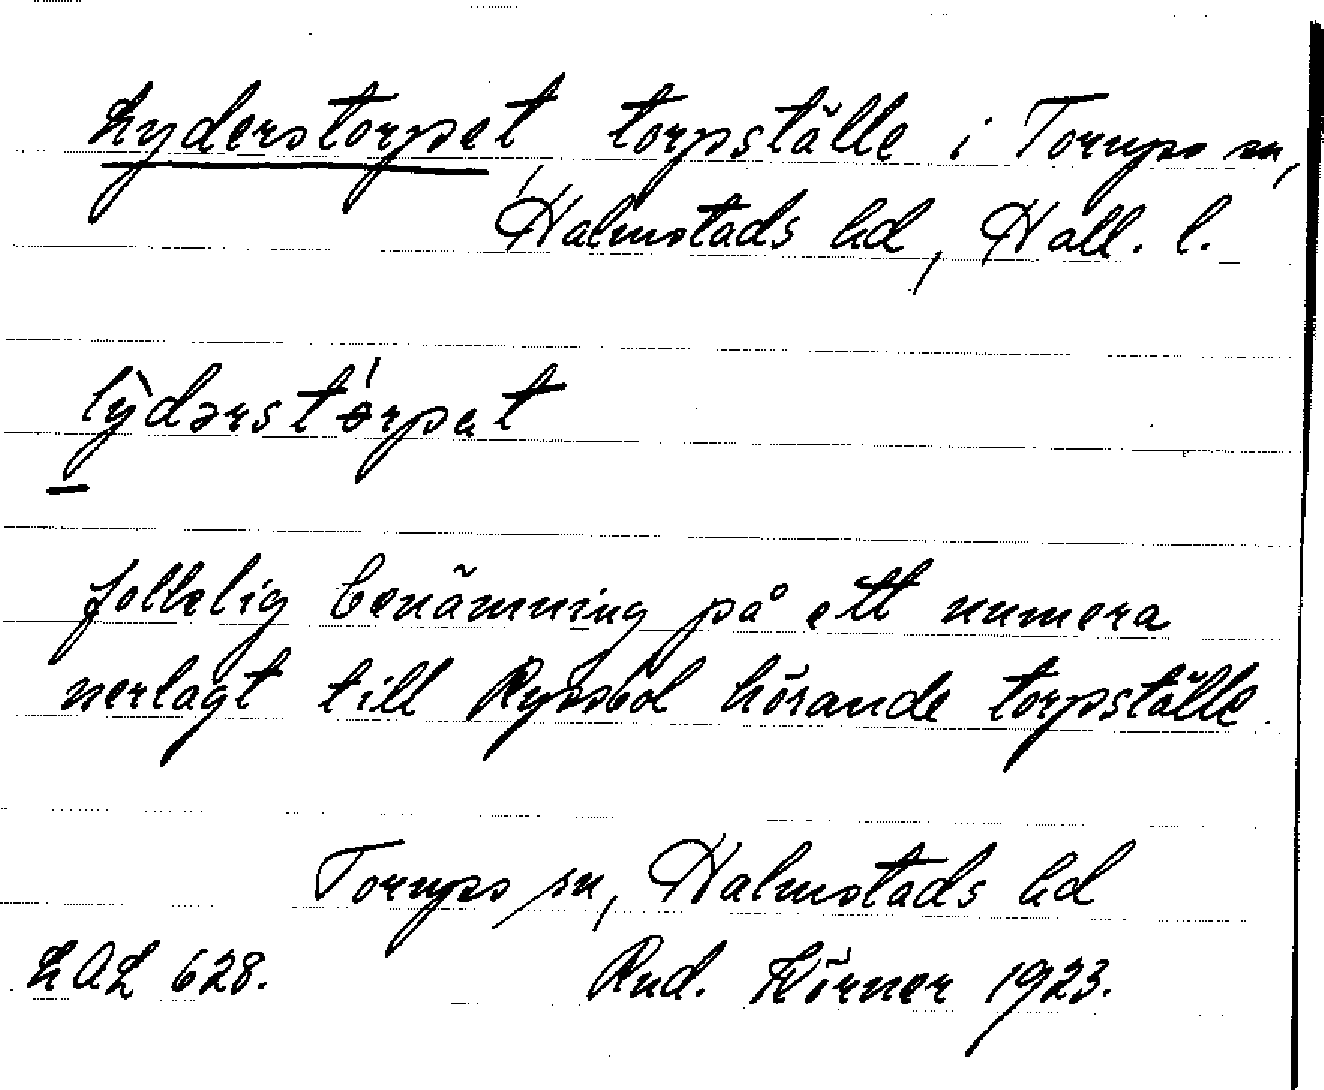 Lyderstorpet, torpställe i Torups sn,
Halmstads hd, Hall. l.
lỳdərstɵ́rpət
folkelig benämning på ett numera
nerlagt till Ryssbol hörande torpställe.
Torups sn, Halmstads hd
LAL 628. Rud. Körner 1923.